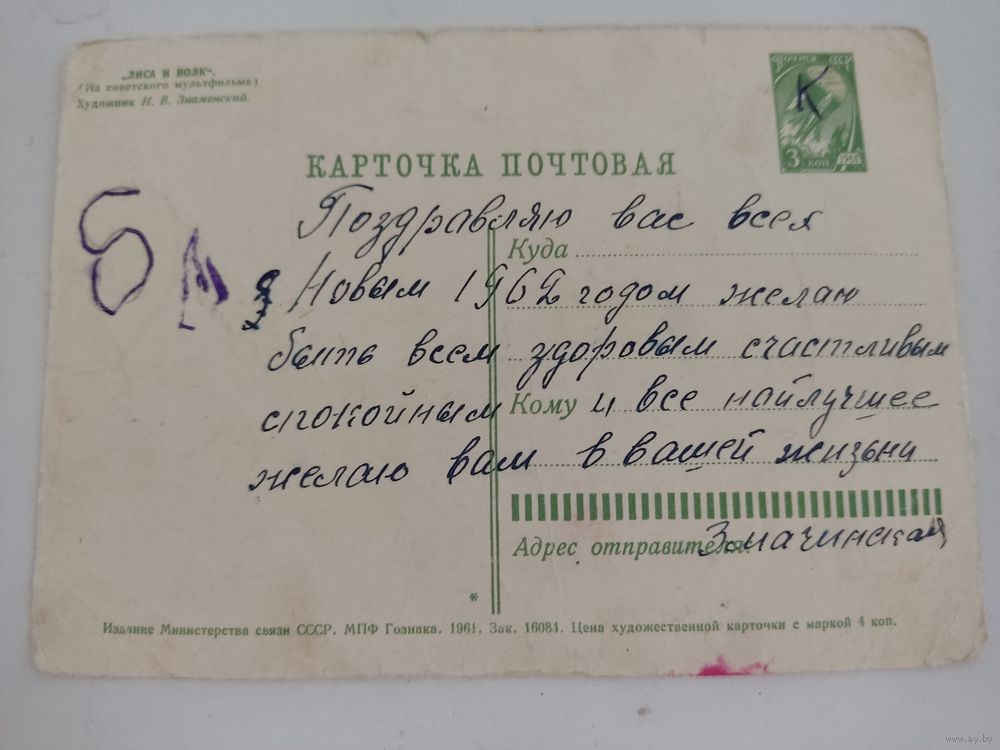 „ЛИСА И ВОЛК“.
(Из советского мультфильма)
Художник И. В. Знаменский.
ПОЧТА СССР
К
3 КОП 1961
КАРТОЧКА ПОЧТОВАЯ
Поздравляю вас всех
Куда
Б М
з Новым 1962 годом желаю
быть всем здоровым счастливым
спокойным и все найлучшее
Кому
желаю вам в вашей жизьни
Адрес отправителя:
Замачинская
*
Издание Министерства связи СССР. МПФ Гознака. 1961. Зак. 16084. Цена художественной карточки с маркой 4 коп.
www.ay.by